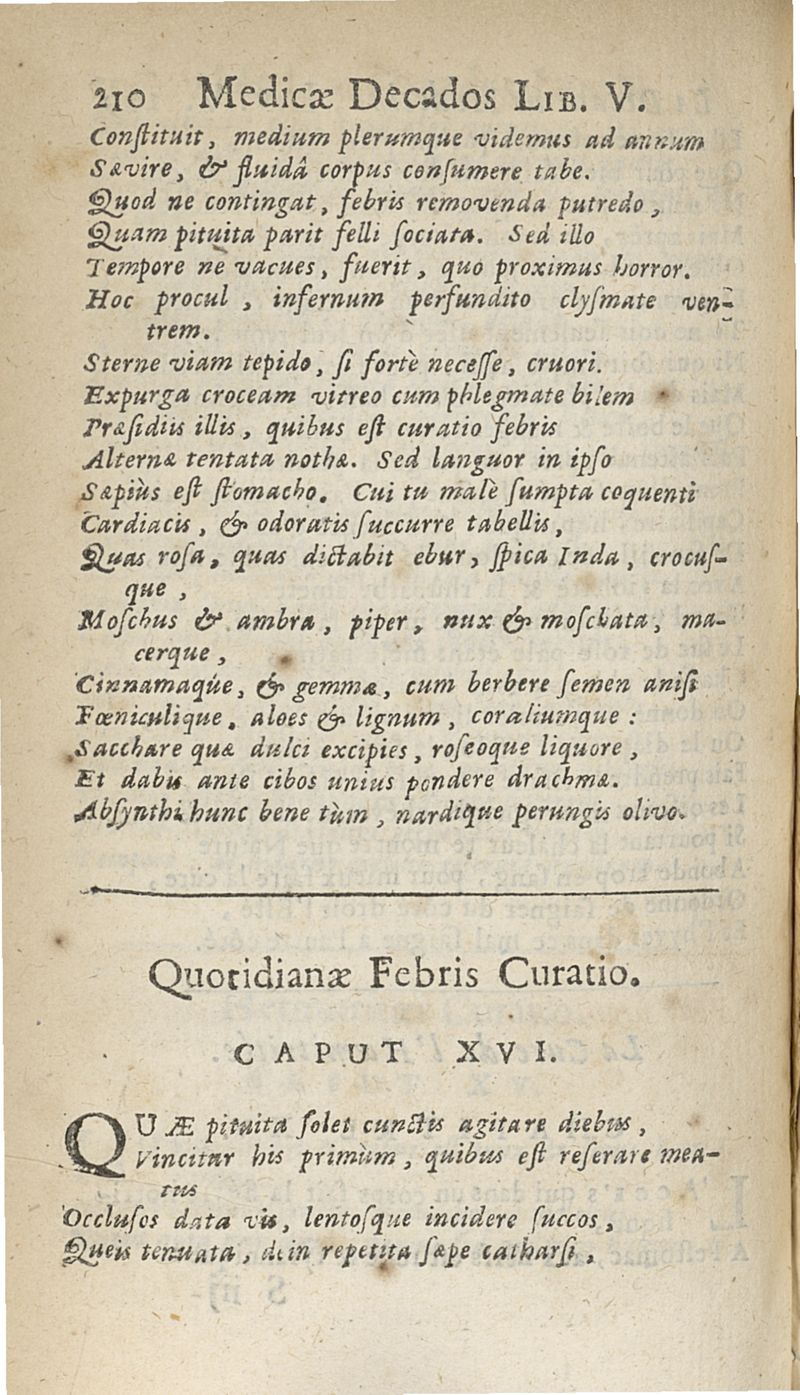 210 Medicæ Decados LIB. V.
Conſtituit, medium plerumque videmus ad annum
Sævire, & fluidâ corpus conſumere tabe.
Quod ne contingat, febris removenda putredo,
Quam pituita parit felli ſociata. Sed illo
Tempore ne vacues, fuerit, quo proximus horror.
Hoc procul, infernum perfundito clyſmate ven-
trem.
Sterne viam tepido, ſi fortè neceſſe, cruori.
Expurga croceam vitreo cum phlegmate bilem
Præſidiis illis, quibus eſt curatio febris
Alternæ tentata nothæ. Sed languor in ipſo
Sæpiùs eſt ſtomacho. Cui tu malè ſumpta coquenti
Cardiacis, & odoratis ſuccurre tabellis,
Quas roſa, quas dictabit ebur, ſpica Inda, crocuſ-
que,
Moſchus & ambra, piper, nux & moſchata, ma-
cerque,
Cinnamaque, & gemmæ, cum berbere ſemen aniſi
Fœniculique, aloes & lignum, coraliumque:
Sacchare quæ dulci excipies, roſeoque liquore,
Et dabis ante cibos unius pondere drachmæ.
Abſynthi hunc bene tùm, nardique perungis olivo.
Quotidianæ Febris Curatio.
CAPUT XVI.
QUÆ pituita ſolet cunctis agitare diebus,
Vincitur his primùm, quibus eſt reſerare mea-
tus
Occluſos data vis, lentoſque incidere ſuccos,
Queis tenuata, dein repetita ſæpe catharſi,